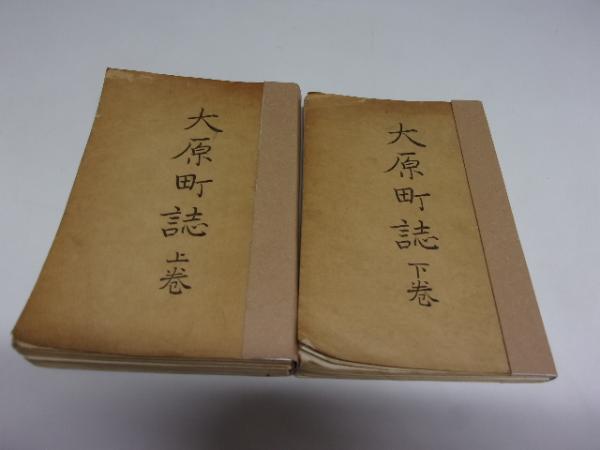 大原町誌
上巻
大原町誌
下巻